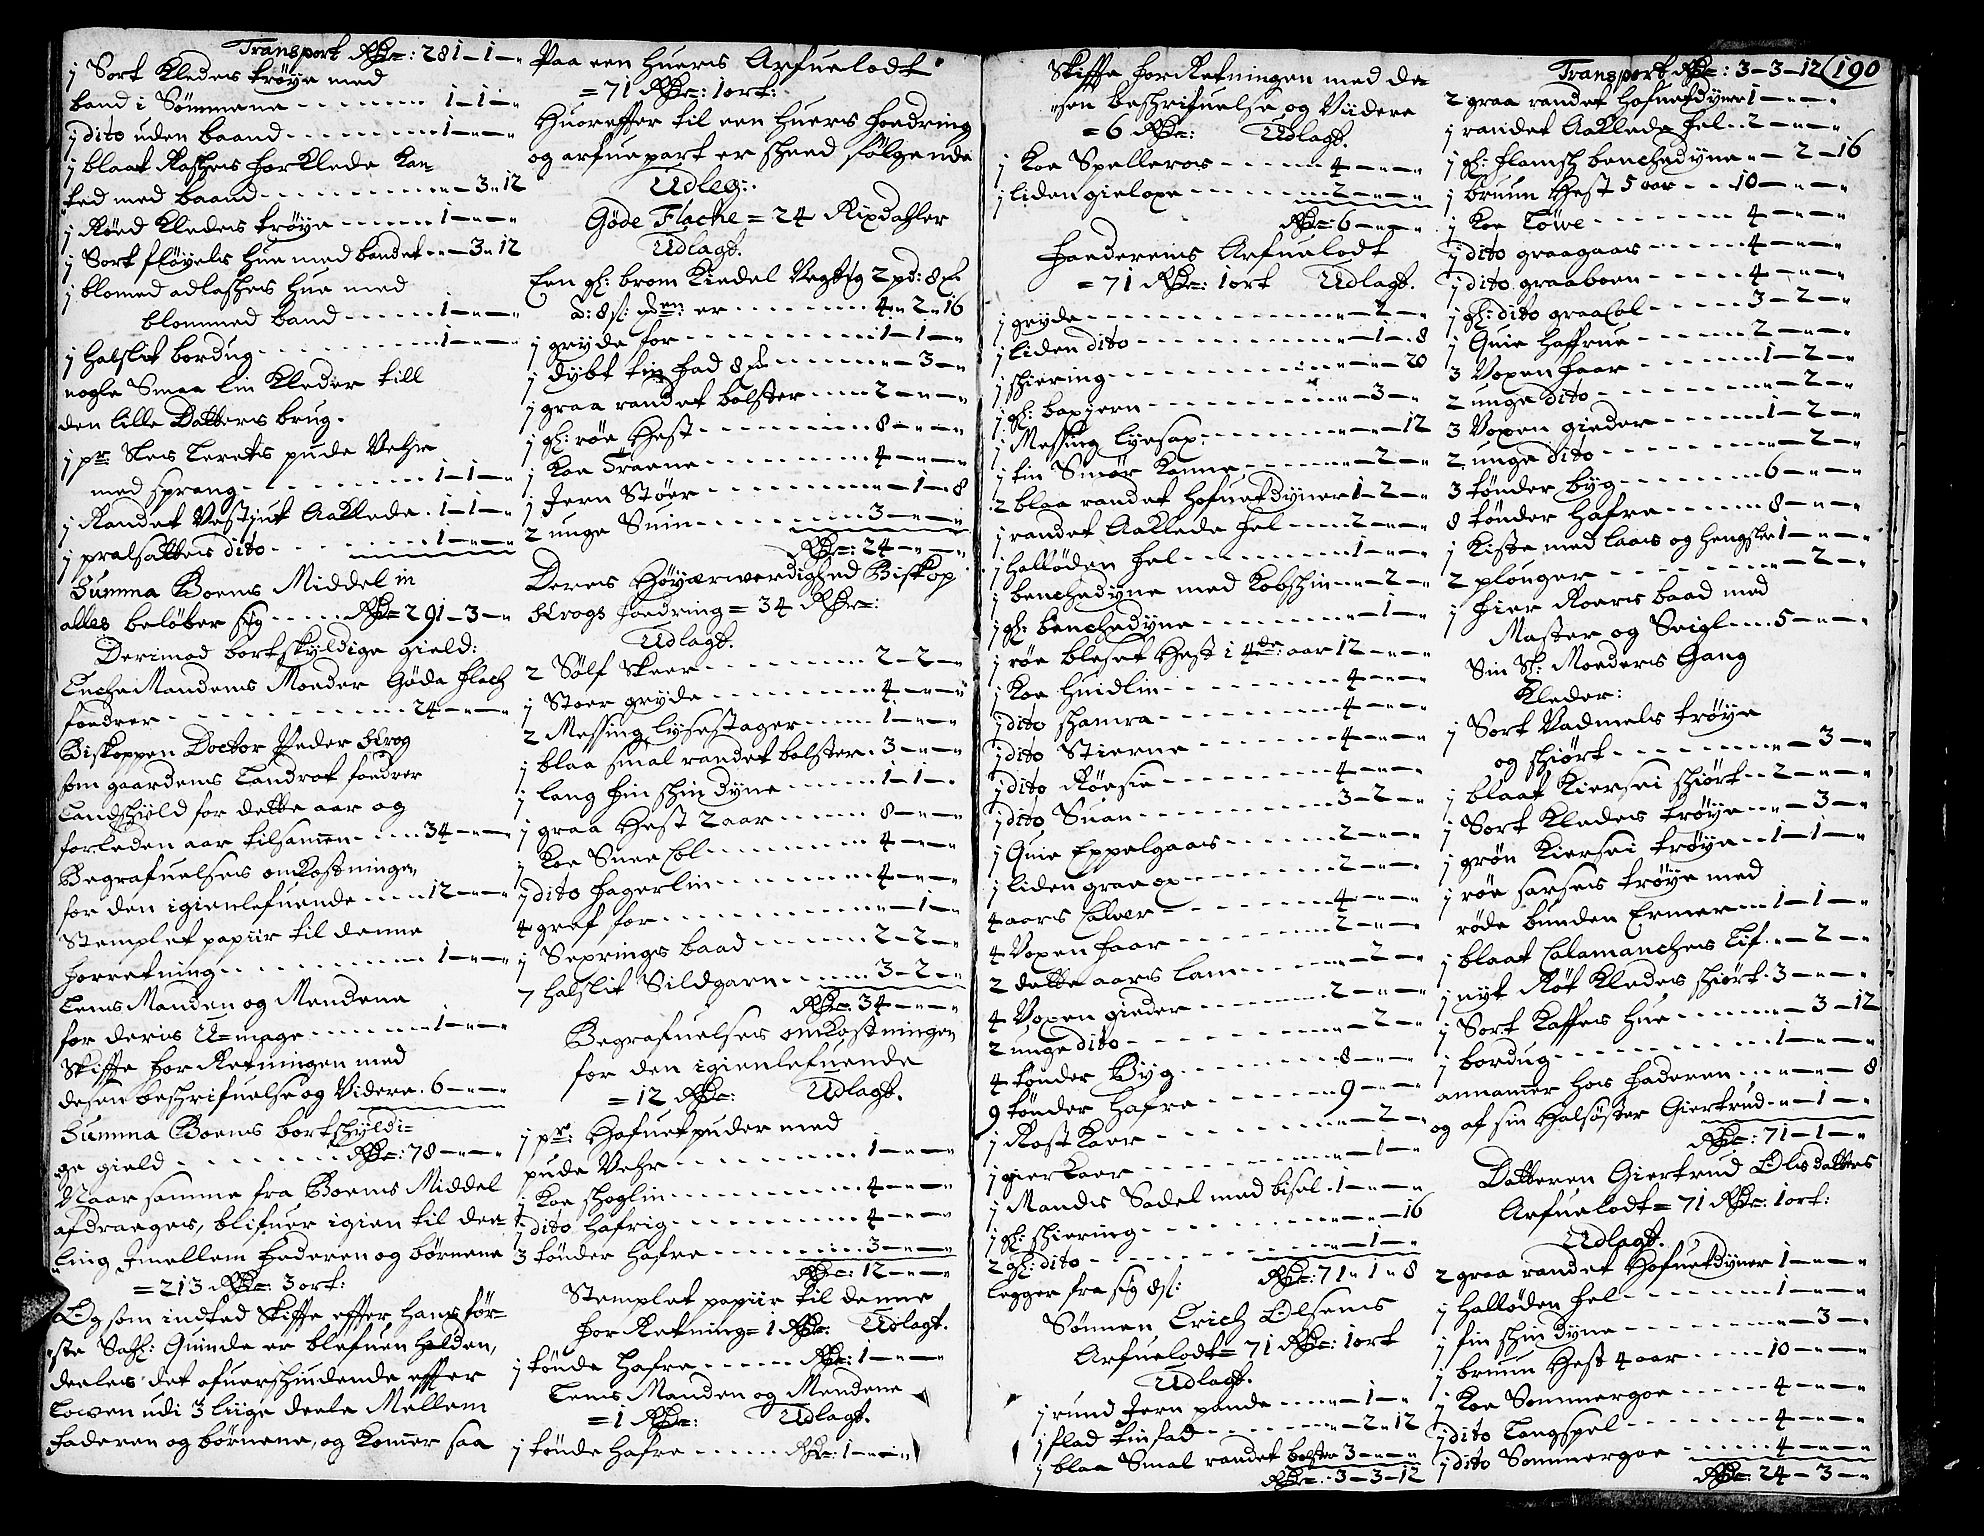 Transport Rdr: 281-1-"
j Sort Kledes trøye med
band i Sømmene 1-1-"
j dito uden baand 1-"-"
j blaat Raskes forklede kan-
ted med baand "-3"12
j Røed Kledes trøye 1-"-"
j Sort fløyels hue med bandet "-3"12
j blomed adlaskes hue med
blommed band 1-"-"
j halslit bordug 1-"-"
nogle Smaa lin Kleder till
den lille Datters brug.
j pr Sles Lerets pude Vehr
med sprang 1-1-"
j Randet Vestjut Aaklede 1-1-"
j pralsatteis dito 1-"-"
Summa Boens Middel in
alles beløber sig Rdr 291-3-"
Derimod bortskyldige gield:
Enche Mandens Moeder Gøda flach
fordrer 24-"-"
Biskoppen Doctor Peder Krog
som gaardens Landrot fordrer
Landskyld for dette aar og
forleden aar tilsamen 34-"-"
Begrafuelses omkostninger
for den igienlefuende 12-"-"
Stemplet papiir til denne
forretning 1-"-"
Lens Manden og Mendene
for deris U-mage 1-"-"
Skiffte forretningen med
desen beskrifuelse og Videre 6-"-"
Summa Boens bortskyldi-
ge gield Rdr: 78-"-"
Naar samme fra Boens Middel
afdraeges, blifuer igien til dee-
ling Jmellem faderen og børnene
=213 Rdr 3 ort:
Og som indted Skiffte effter hans før-
ste Sal: Quinde er blefuen holden,
deeles det ofuerskudende effter
Lowen udi 3 liige deele Mellem
faderen og børnene, og komer saa
Paa een huers Arfuelodt
=71 Rdr: 1 ort:
Huoreffter til een huers fordring
og arfuepart er skeed følgende
Udleg:
Gøde Flache = 24 Rixdahler
Udlagt.
Een gl: brom Kiedel Vegtig 2 pd: 8 #
a: 8 s: pden: er 4-2-16
j gryde for 1-1-"
j dybt tin fad 8 # "-3-"
j graa randet bolster 2-"-"
j gl: røe Hest 8-"-"
j Koe Traene 4-"-"
j Jern Støer "-1-8
2 unge Svin 3-"-"
Rdr: 24-"-"
Deres Høyærwerdighed Biskop
Krogs fordring = 34 Rdr:
Udlagt.
2 Sølf Skeer 2-2-"
j Stoer gryde 4-"-"
2 Messing lysestager 1-"-"
j blaa smal randet bolster 3-"-"
j lang fin skin dyne 1-1-"
j graa Hest 2 aar 8-"-"
j Koe Snee Col 4-"-"
j dito fagerlin 4-"-"
4 gref for "-1-"
jSeprings baad 2-2-"
7 halslit Sildgarn 3-2-"
Rdr: 34-"-"
Begrafuelses omkostningen
for den igienlefuende
=12 Rdr: Udlagt.
j pr: Hofuetpuder med
pude Vehr 1-"-"
j Koe skoglin 4-"-"
j dito hafrig 4-"-"
3 tønder hafre 3-"-"
Rdr: 12-"-"
Stemplet papiir til denne
forretning = 1 Rdr: Udlagt.
j tønde hafre Rdr: 1-"-"
Lens Manden og Mendene
=1 Rdr: Udlagt.
j tønde hafre Rdr: 1-"-"
Skiffte forretningen med de-
sen beskrifuelse og Viidere
=6 Rdr: Udlagt.
j Koe Spelleros 4-"-"
j liden gieloxe 2-"-"
Rdr: 6-"-"
faderens Arfuelodt
=71 Rdr: 1 ort Udlagt.
j gryde "-2-"
j liden dito "-1-8
j skiering "-"-20
j gl: baxjern "-3-"
j Messing lysesax "-"-12
j tin Smør Kanne "-2-"
2 blaa randet hofuetdyner 1-2-"
j randet Aaklede fel 2-"-"
j halløden fel 1-"-"
j benchedyne med Kobskin "-2-"
j gl: benchedyne "-1-"
j røe bleset Hest i 4de: aar 12-"-"
j Koe huidlin 4-"-"
j dito skamra 4-"-"
j dito Stierne 4-"-"
j dito Røesie 4-"-"
j dito Suan 3-2-"
j Quie Eppelgaas 2-"-"
j liden graa ox 2-"-"
4 aars Calver 4-"-"
4 Voxen faar 2-"-"
2 dette aars lam "-2-"
4 Voxen gieder 2-"-"
2 unge dito "-2-"
4 tønder Byg 8-"-"
9 tønder hafre 9-"-"
j Rost Kaer "-2-"
j gierkaer "-1-"
j Mandis Sadel med bisel 1-"-"
j gl: skiering "-"-16
2 gl: dito "-1-"
legger fra sig 8 s: Rdr: 71-1-8
Sønnen Erich Olsens
Arfuelodt = 71 Rdr: 1 ort
Udlagt.
j rund Jern pande "-1-"
j flad tinfad "-2-12
j blaa Smal randet bolster 3-"-"
Rdr: 3-3-12
190
Transport Rdr: 3-3-12
2 graa randet hofuetdyner 1-"-"
j randet Aaklede fel 2-"-"
j gl: flamsk benchedyne "-2-16
j bruun Hest 5 aar 10-"-"
j Koe Løwe 4-"-"
j dito graagaas 4-"-"
j dito graaboen 4-"-"
j gl: dito graaCol 3-2-"
j Quie haffrue 2-"-"
3 Voxen faar 1-2-"
2 unge dito "-2-"
3 Voxen gieder 1-2-"
2 unge dito "-2-"
3 tønder byg 6-"-"
8 tønder hafre 8-"-"
j Kiste med laas og hengsler 1-"-"
2 plouger "-2-"
j fier Roers baad med
Master og Seigl 5-"-"
Sin Sl: Moeders Gang
Kleder:
j Sort Vadmels trøye
og skiørt "-3-"
j blaat Kiersei skiørt 2-"-"
j Sort Kledes trøye "-3-"
j grøn Kiersei trøye 1-1-"
j røe sarses trøye med
røde bunden Ermer 1-1-"
j blaat Calamanches Lif "-2-"
j nyt Røt Kledes skiørt 3-"-"
j Sort Kaffes hue "-3-12
j bordug 1-"-"
annamer hos faderen "-"-8
og af sin Halsøster Giertrud "-1-"
Rdr: 71-1-"
Datteren Giertrud Olsdatters
Arfuelodt = 71 Rdr: 1 ort:
Udlagt.
2 graa randet Hofuetdyner 1-"-"
j halløden fel 1-"-"
j fin skin dyne "-3-"
j bruun Hest 4 aar 10-"-"
j Koe Sommergoe 4-"-"
j dito Langspel 4-"-"
j dito Sommergoe 4-"-"
Rdr: 24-3-"